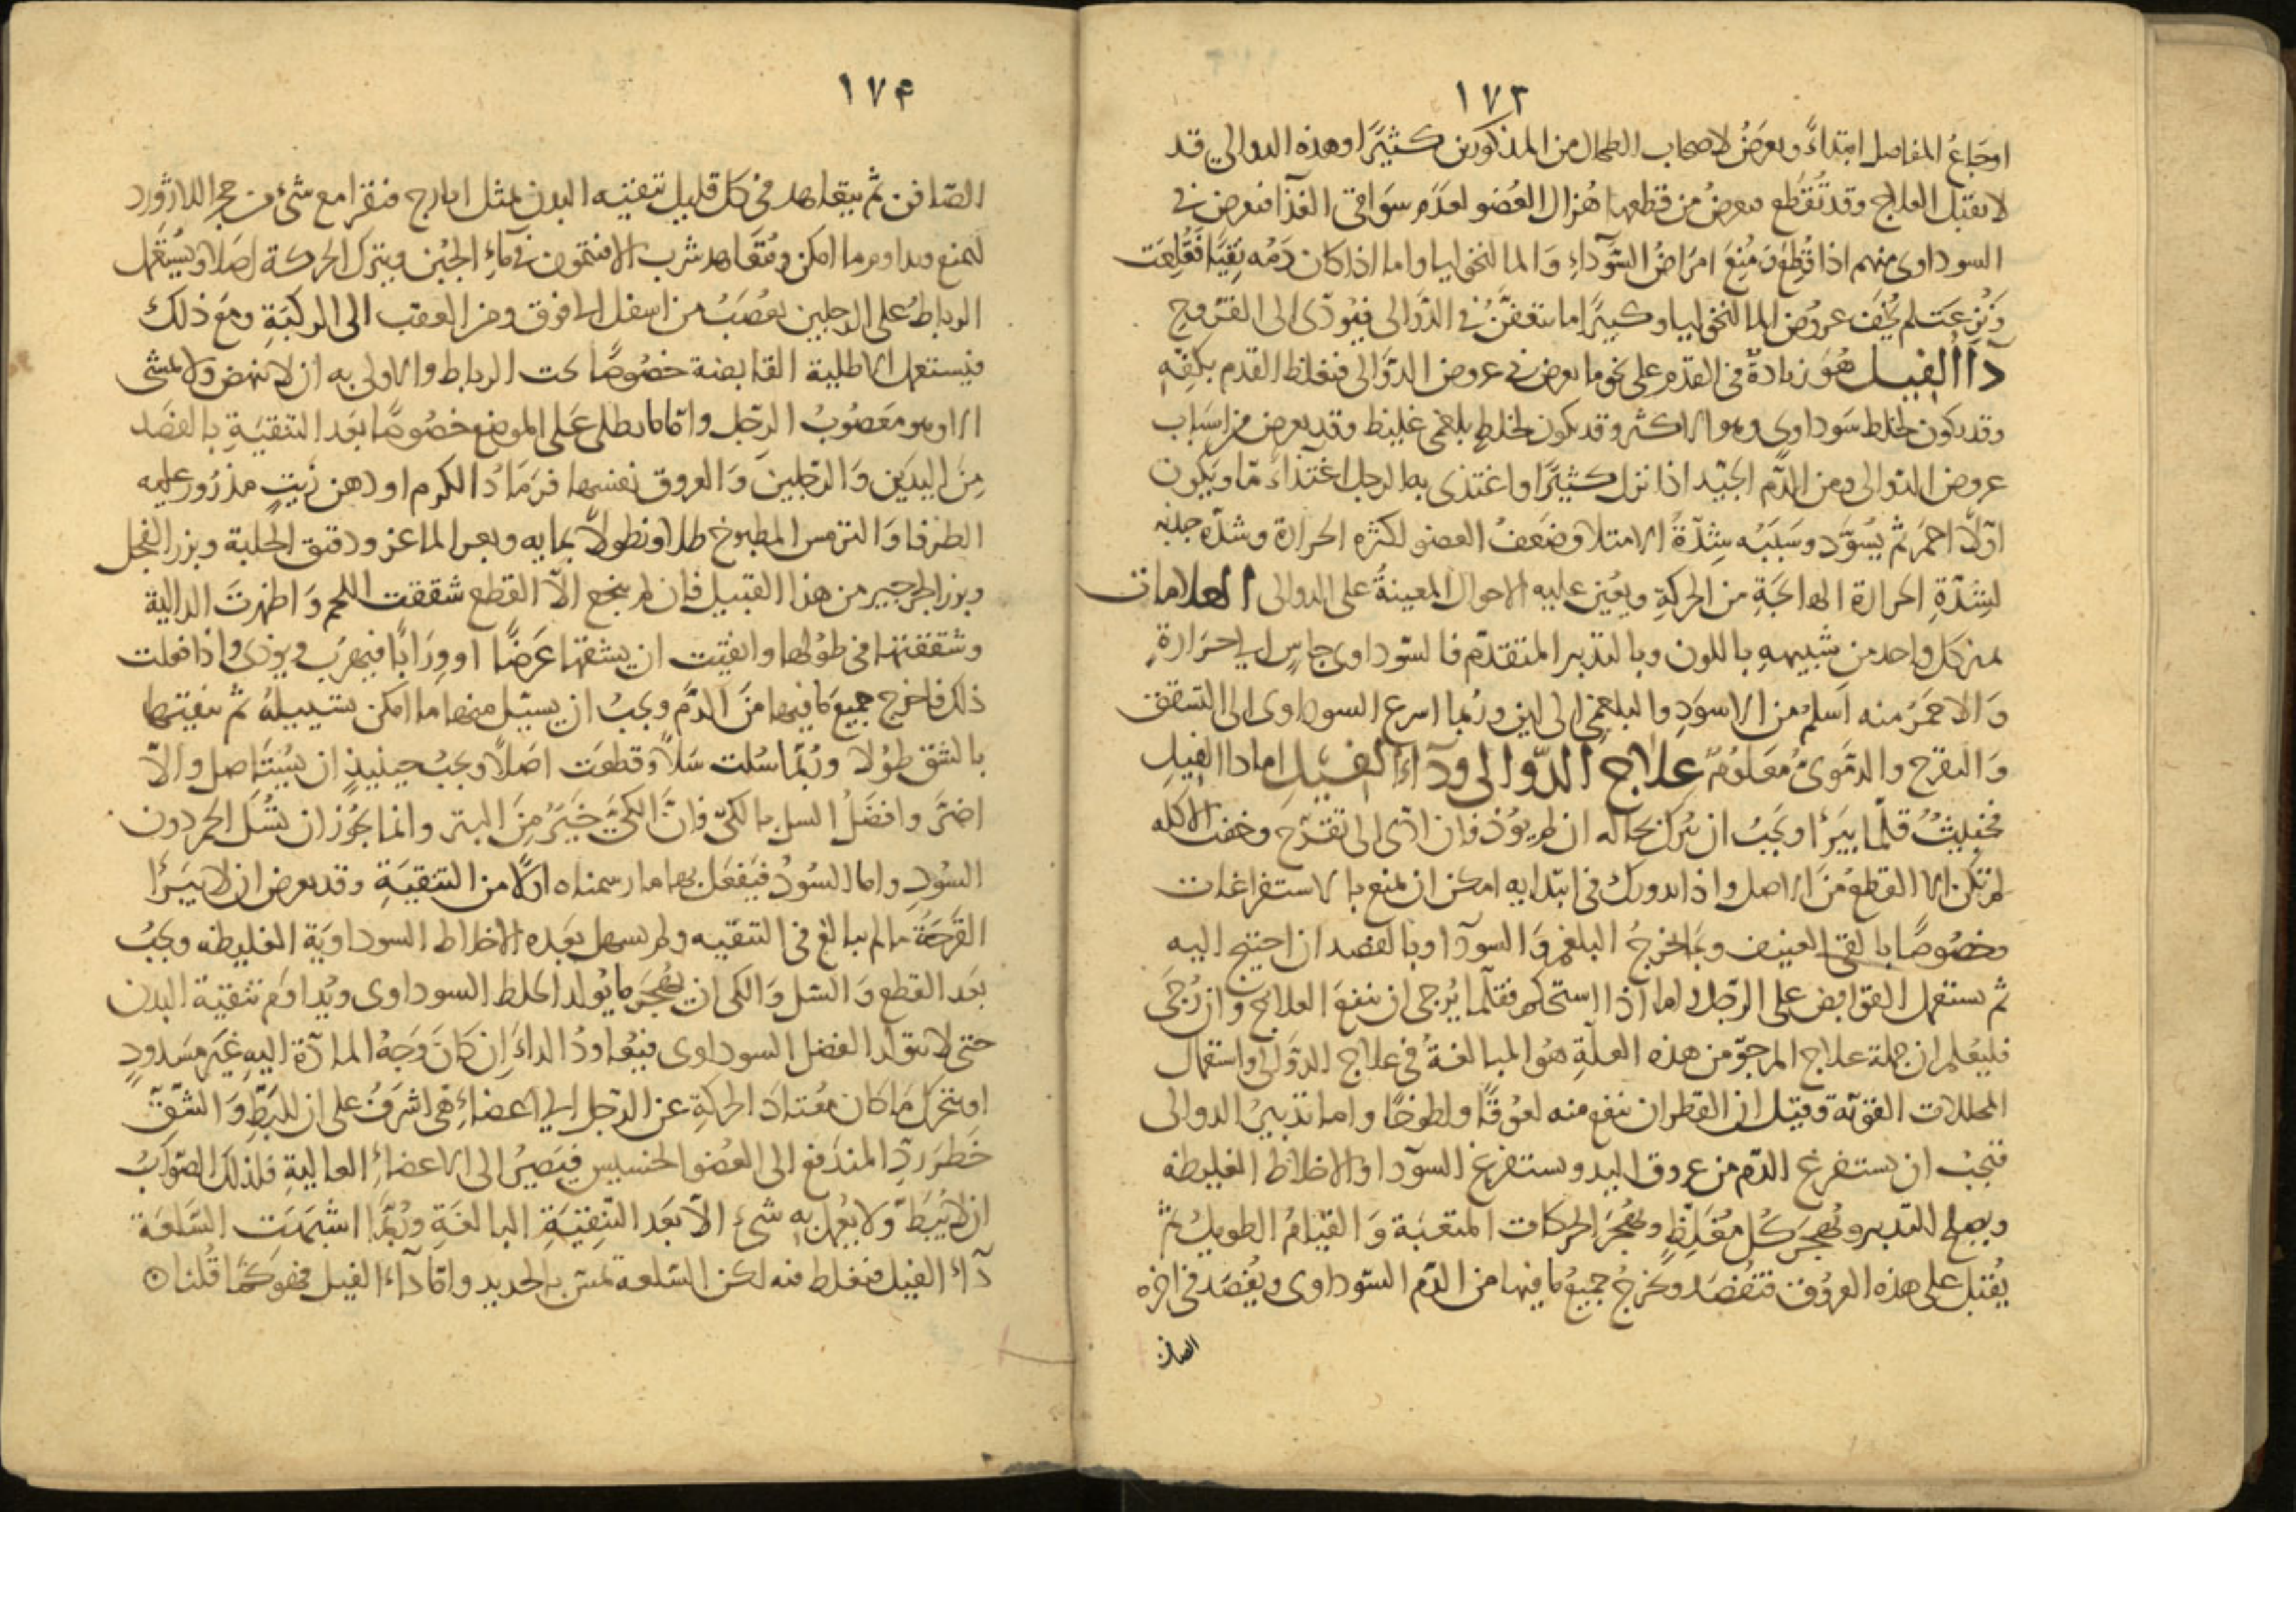 ١٧٣
اوجَاعُ المفاصل ابتداءً ويعرَضُ لاصحاب الطحال من المذكورين كثيرًا وهذه الدوالي قد
لا تقبل العلاج وقد تُقطَع فيعرضُ من قطعها هُزال العُضو لعدَم سَواقى الغذا فيعرض في
السوداوى منهم اذا قُطعَ ومُنِعَ امرَاضُ السَّودَاءِ وَالمالنخوليا واما اذا كان دَمُه نَقِيًّا فَقُلِعَت
وَنُزِعَت لم يُخَف عروض المالنخوليا وكثيرًا ما تتعفَّنُ في الدَّوالى فيُودّى الى القروح
دآ الفيل هُوَ زيادةٌ في القدم على نحو ما يعرض في عروض الدوَّالى فيغلظ القدم بكثفِه
وقد يكون لخلط سَوداوى وهو الاكثر وقد يكون لخلطٍ بلغمى غليظ وقد يعرض من اسبَاب
عروض الدّوالى ومن الدَّم الجيّد اذا نزل كثيرًا واغتذى به الرجل اغتذاءً مّا ويكون
اوّلاً احمَر ثم يُسوّد وسَبَبُه شِدّةُ الامتلا وضَعفُ العضو لكثره الحرارة وشدّه جذبه
لشِدّةِ الحرارة الهائجَةِ من الحركةِ ويُعِين عليه الاحوال المعينةُ على الدوالى العلامات
يميز كل واحد من شبيههِ باللون وبالتدبير المتقدّم فالسّوداوى جاسٍ الى حَرَارةٍ
وَالاحمَرُ منه اَسلمُ من الاسوَدِ والبلغمى الى لين وربما اسرع السوداوى الى التشقق
وَالتقرح والدمَوىُ مُعَلومٌ علاج الدّوالى ودآء الفيل اما دا الفيلِ
فخبِيثٌ قلّما يَبرَأ ويجَبُ ان يُترك بحاله ان لم يؤذ فان ادّى الى تقرّح وخفت الاكله
لم تكن الا القطعُ مِنَ الاصل واذا تدورك في ابتدايه امكن ان يمنع بالاستفراغات
وخصُوصًا بالقى العنيف وبما يخرجُ البلغم وَالسودآ وبالفصد ان احتيج اليه
ثم يستعمل القوابض على الرّجل واما آذا استحكم فقلّما يُرجى ان ينفع العلاج وَان رُجَى
فليُعلم ان جملة علاج المرجوّ من هذه العلّةِ هُو المبالغةُ في علاج الدوَالى واستعمال
المحللات القويّة وقيل ان القطران ينفع منه لعُوقًا ولطوخًا واما تدبيرُ الدوالى
فيجبُ ان يستفرغ الدّم من عروق اليد ويستفرغ السودآ والاخلاط الغليظه
ويصلح التدبير ويُهجَرَ كُل مغَلِظٍ ويُهجرَ الحركات المتعبَة وَالقيَامُ الطويلُ ثم
يُقبَل على هذه العُروق فتُفصَد ويخرجُ جميعُ ما فيها من الدّم السّوداوى ويُفصَد في اخره
الصافن
١٧٤
الصّافن ثم يتعاهد في كل قليل تنقيته البدن بمثل ايارج فيقرا مع شئ من حجر اللازورد
ليمنع ويداوم ما امكن وتعَاهد شرب الافتيمون في مآءِ الجُبن ويترك الحركة اصَلا ويُستَعمل
الرباط على الرجلين يعصَبُ من اسفل الى فوق ومن العقب الى الركبَةِ ومعَ ذلك
فيستعمل الاطلية القابضة خصُوصًا تحت الرباط والاولى به ان لا ينهض ولا يمشى
الا وهو معَصُوبُ الرّجل واما ما يطلى على الموضع خصُوصًا بعَد التنقيَةِ بالفصَد
مِن اليدَين وَالرّجلينَ وَالعروق نفسها فرَمَادُ الكرم او دهن زَيتٍ مذرُور عليه
الطرفا وَالترمس المطبوخ طلا ونطولاً بمايه وبعر الماعز ودقيق الحلبة وبزر الفجل
وبزر الجرجير من هذا القبيل فان لم ينجع الاّ القطع شققت اللحم وَاظهرتَ الدالية
وشققتها في طوُلها واتقيت ان يشقها عَرضًا او ورَابًا فيهرَب ويوذى واذا فعلت
ذلك فاخرج جميعَ ما فيها مِنَ الدَّم ويجبُ ان يسيّل منها ما امكن تسييلهُ ثم تنقيتها
بالشق طوُلا وربُّما سُلت سَلاً وقطعَت اصَلاً ويجبُ حينيذٍ ان يُستَاصل والاّ
اضرَّ وافضَلُ السل بالكىّ فانَّ الكىَّ خَيَرٌ مِنَ البتر وانما يجُوز ان تُسَل الحمر دون
السُودِ واما السُودُ فيَفعَل بها ما رسمناه اوّلا من التنقيَةِ وقد يعرض ان لا يبَرَأ
القَرحَةُ ما لم يبالغ في التنقيه ولم يسهل بعَده الاخلاط السوداويَة الغليظه ويجَبُ
بعَد القطع وَالسّل وَالكى ان يُهجَر ما يُولد الخلط السوداوى ويُداوَم تنقيَة البدن
حتى لا يتولد الفضل السوداوى فيُعاودُ الداءَ اِن كَانَ وَجهُ المادّة اليهِ غيَر مسَدودٍ
او يتحرّك مَا كان مُعتادَ الحركَةِ عن الرّجل الى اعضاءٍ هى اشرَفُ على ان للبَطِّ وَالشقّ
خَطرَ ردّ المندَفع الى العُضو الخسيس فيَصيُر الى الاعضاءِ العاليةِ فلذلك الصّوَابُ
ان لا يُبَطّ وَلا يعُمل به شئ الاّ بعَد التنقيَةِ البالغَةِ وربُّما اشبهَت السّلعَة
دآء الفيل فيغلط فيه لكن السّلعه تميّز بالحديد واما دآء الفيل فهو كما قُلنا ۞